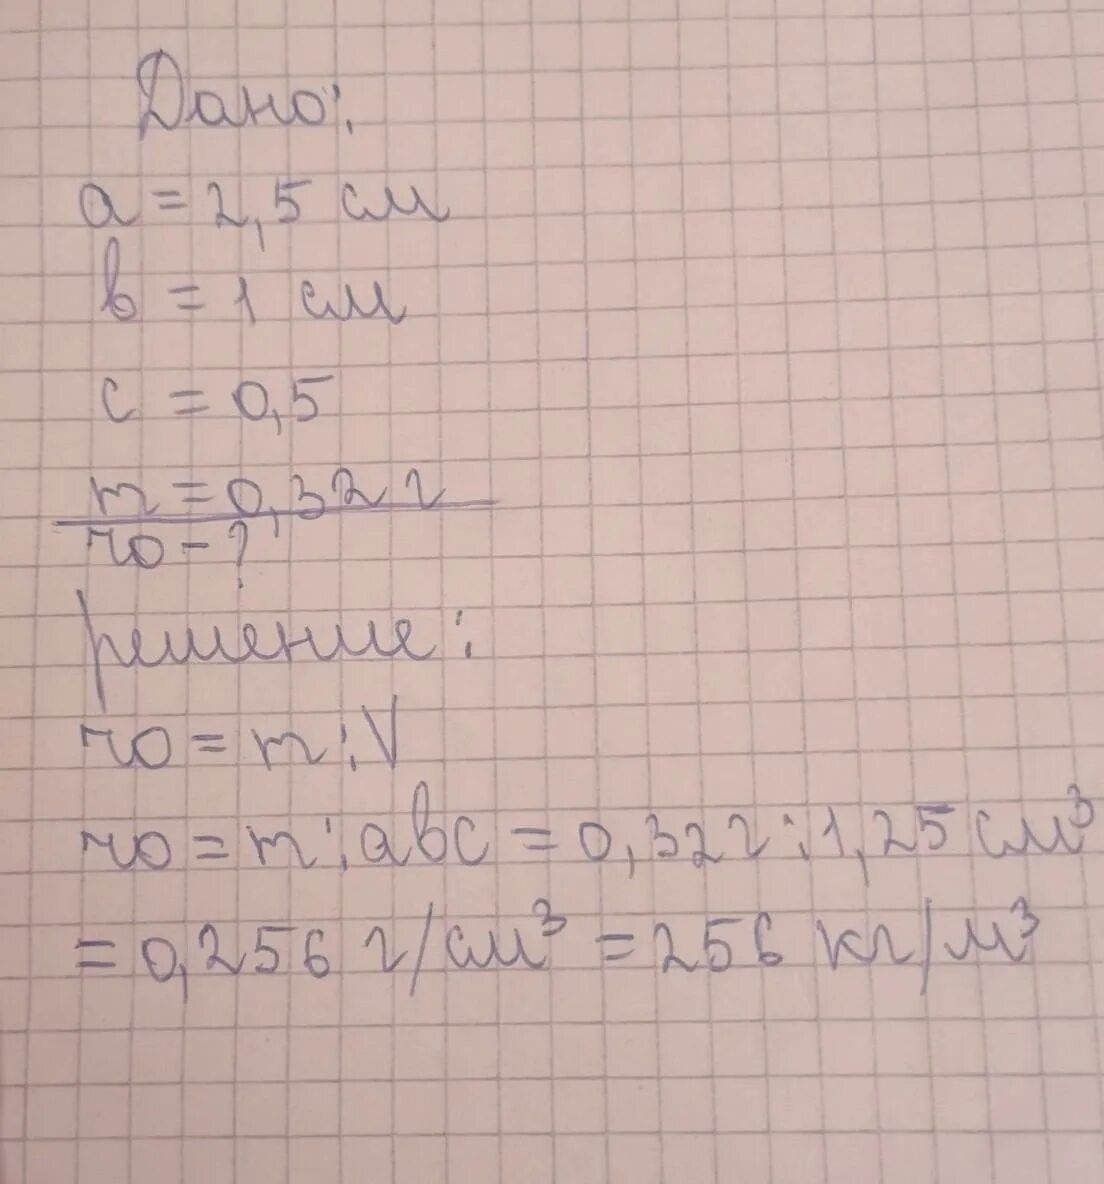 Дано:
a = 2,5 см
в = 1 см
c = 0,5
m = 0,32 г
ro - ?
решение:
ro = m : V
ro = m : aвc = 0,32 г : 1,25 см³
= 0,256 г/см³ = 256 кг/м³